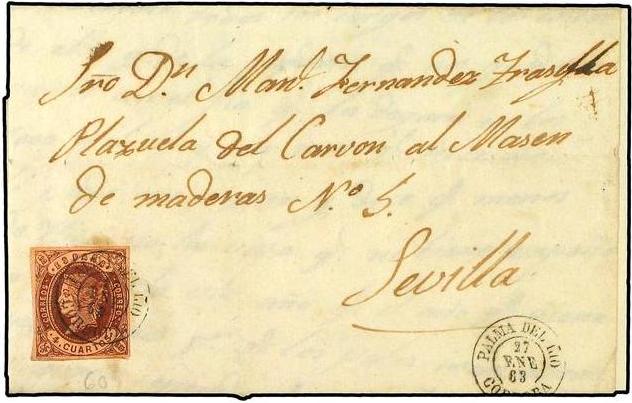 Sño Dn Manl Fernandez
Plazuela del Carvon al Masen
de maderas No 5.
Sevilla
CORREOS
CORREOS
4. CUARTOS
PALMA DEL RIO
27
ENE
63
CORDOBA
60